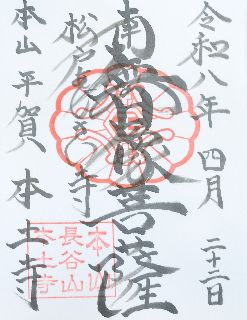 令和八年 四月 二十二日
南無日蓮大菩薩
松戸あじさい寺
本山 平賀 本土寺
本山
長谷山
本土寺